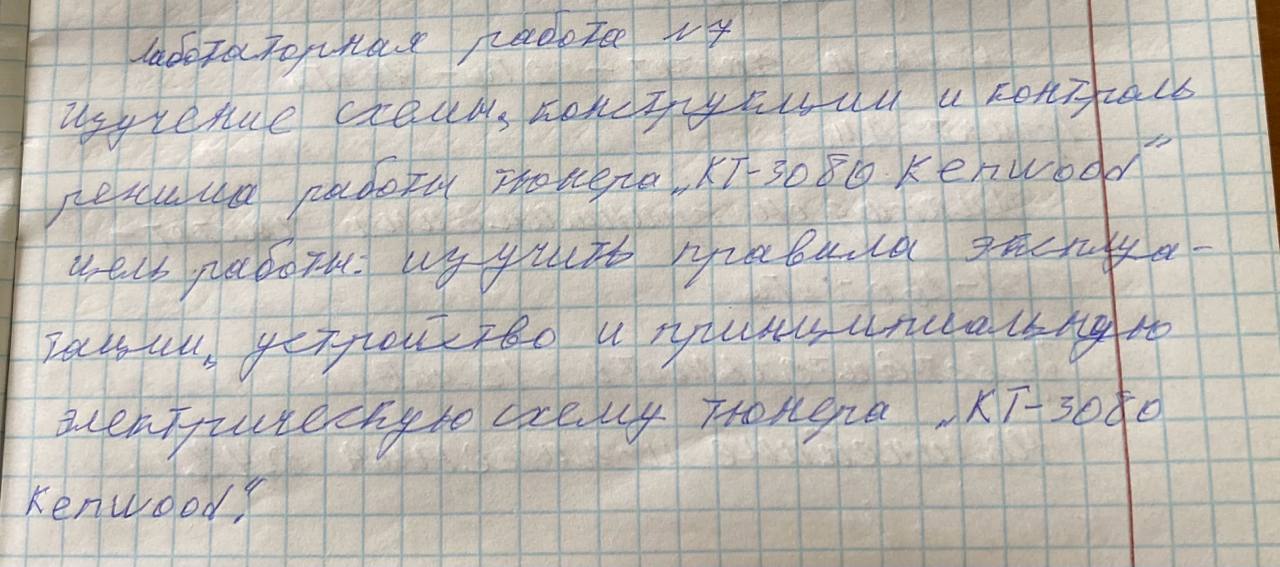 Лаботаторная работа №7
изучение схемы, конструкции и контроль
режима работы тюнера „КТ-3080 Kenwood"
цель работы: изучить правила эксплуа-
тации, устройство и принципиальную
электрическую схему тюнера „КТ-3080
Kenwood".